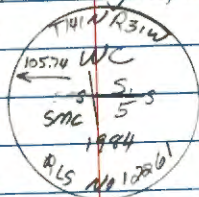 T141N R31W
105.74 WC
S
S 5 S
SMC
1984
RLS No 12261